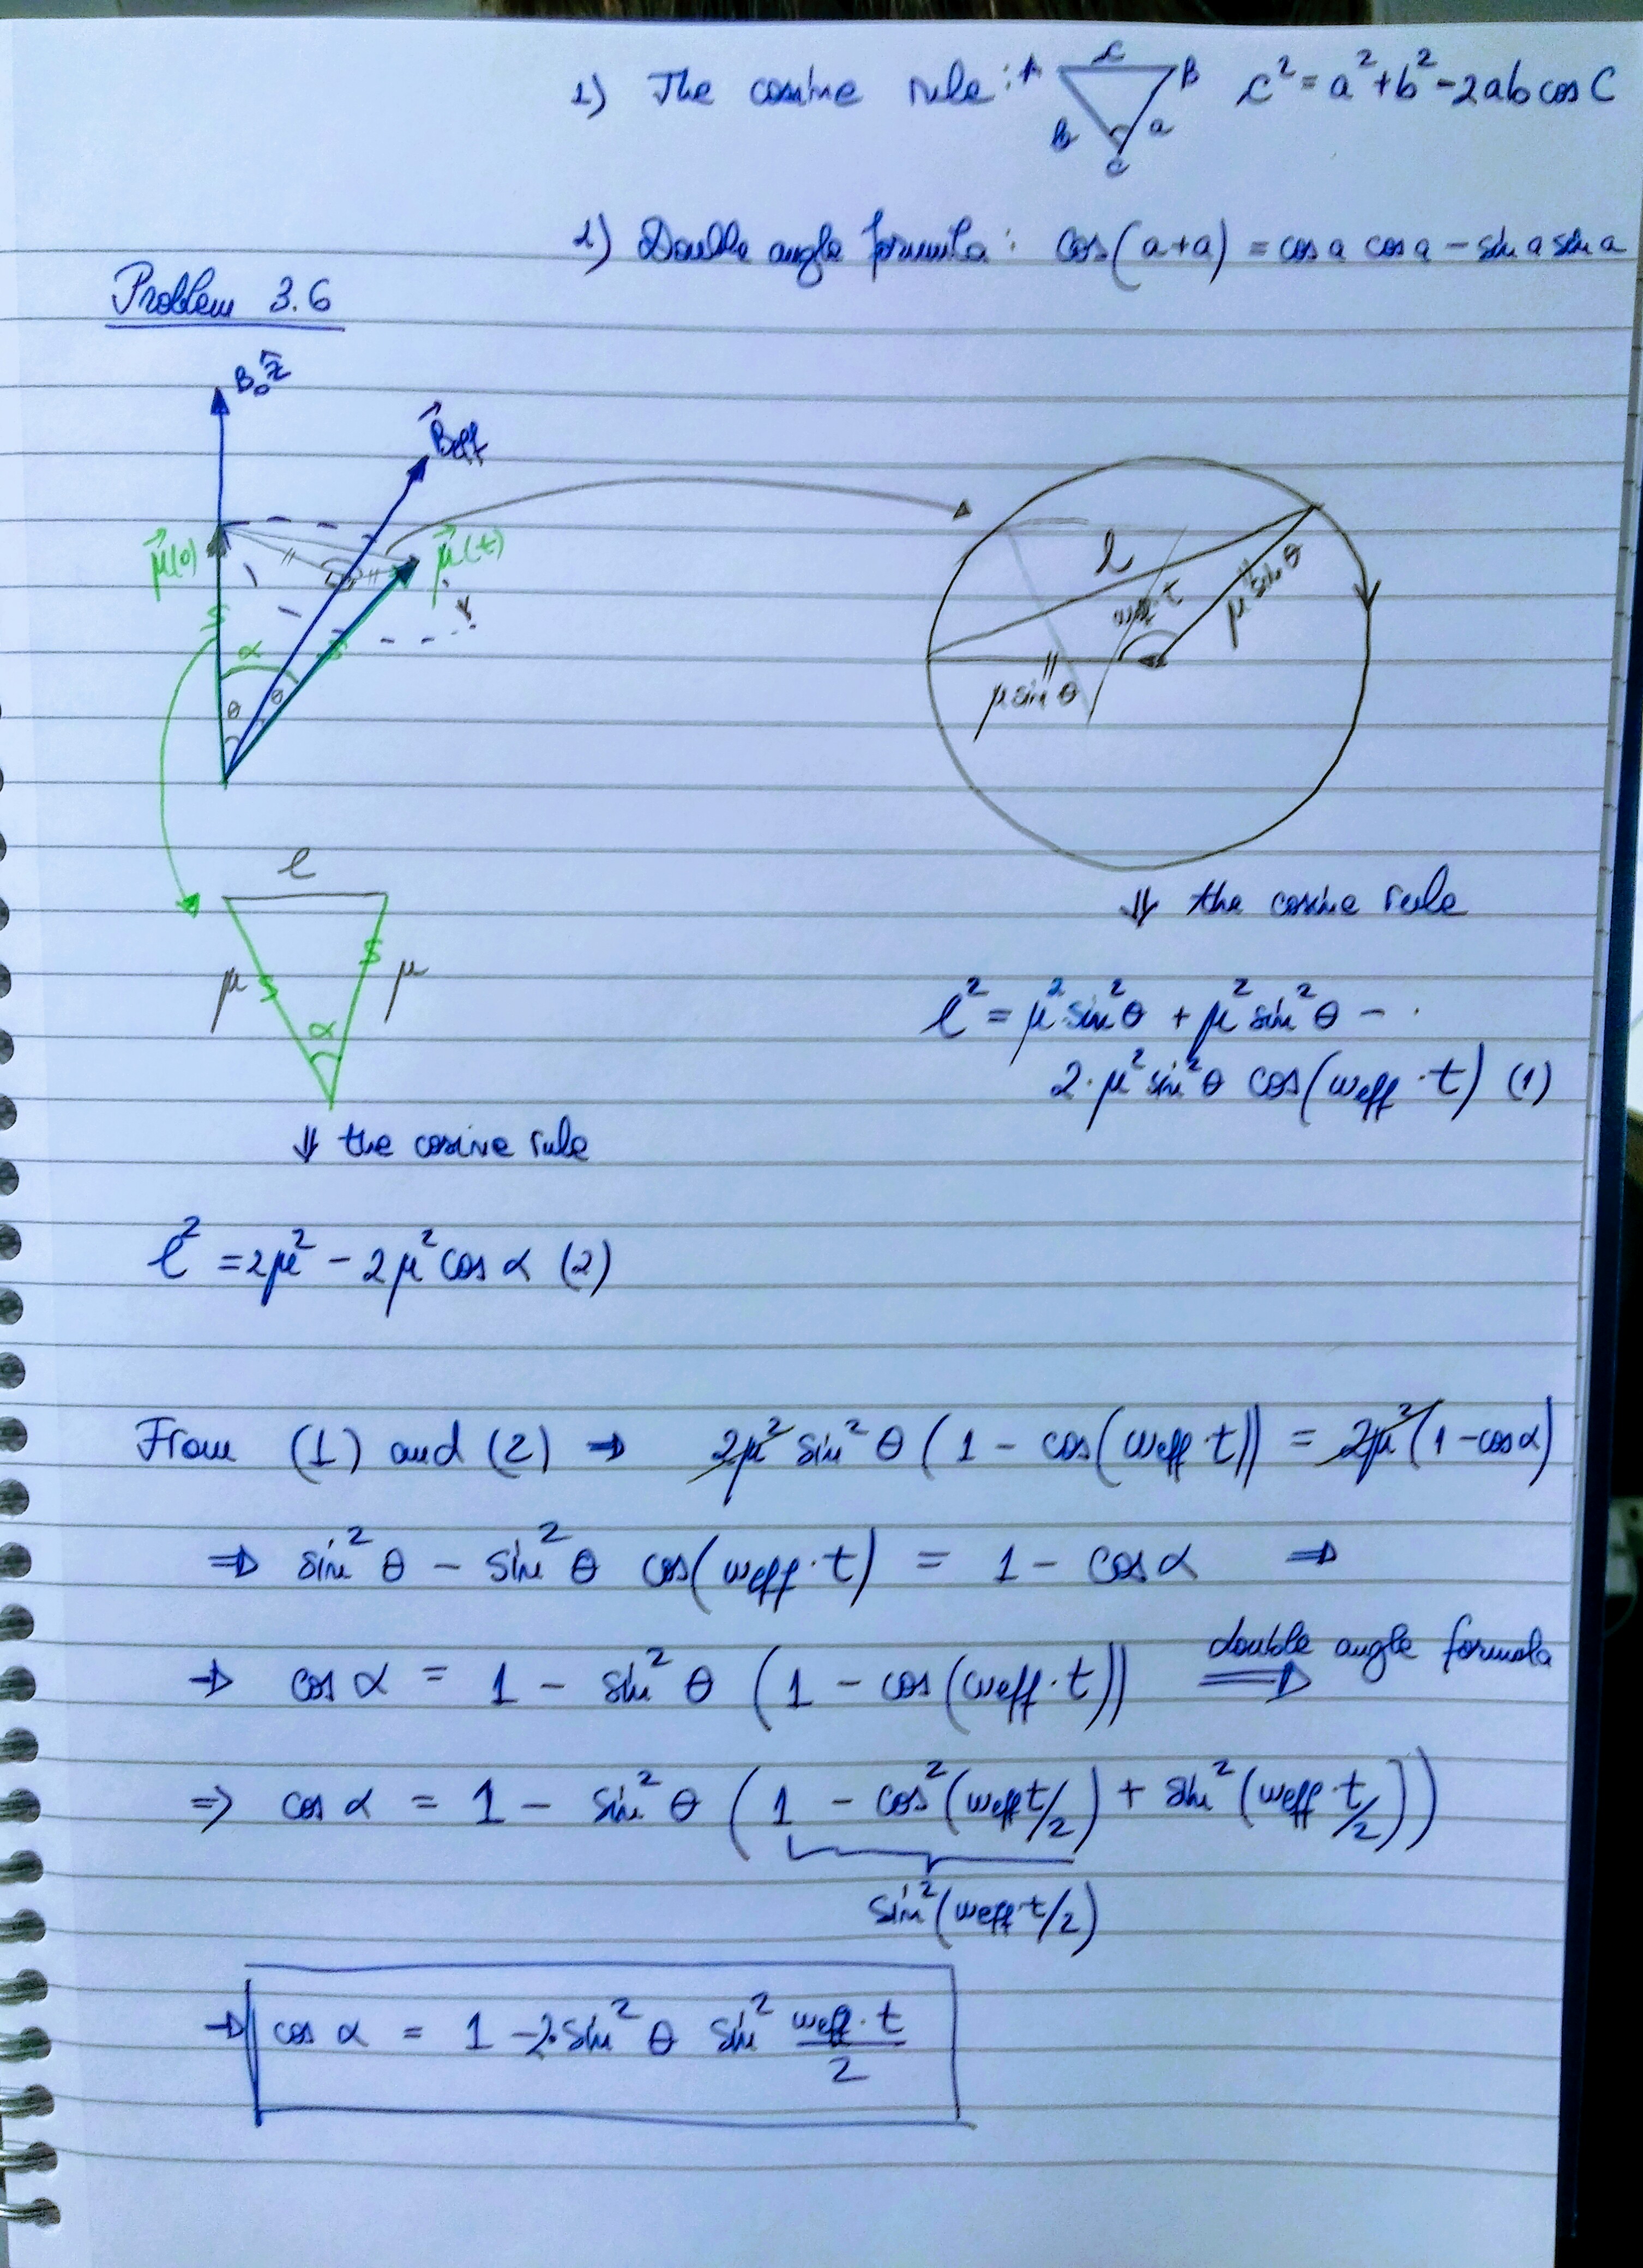 1) The cosine rule: A c B B a C c² = a² + b² - 2ab cos C
2) Double angle formula: cos(a+a) = cos a cos a - sin a sin a
Problem 3.6
B₀ẑ
B⃗eff
μ⃗(0) μ⃗(t)
α
θ θ
l
ωeff·t
μ sinθ
μ sinθ
l
μ μ
α
⇓ the cosine rule
l² = μ² sin²θ + μ² sin²θ - ·
2·μ² sin²θ cos(ωeff·t) (1)
⇓ the cosine rule
l² = 2μ² - 2μ² cos α (2)
From (1) and (2) ⇒ 2μ² sin²θ (1 - cos(ωeff·t)) = 2μ² (1 - cosα)
⇒ sin²θ - sin²θ cos(ωeff·t) = 1 - cosα ⇒
⇒ cos α = 1 - sin²θ (1 - cos(ωeff·t)) double angle formula ⇒
⇒ cos α = 1 - sin²θ (1 - cos²(ωeff t/2) + sin²(ωeff·t/2))
sin²(ωeff·t/2)
⇒ cos α = 1 - 2·sin²θ sin² ωeff·t/2